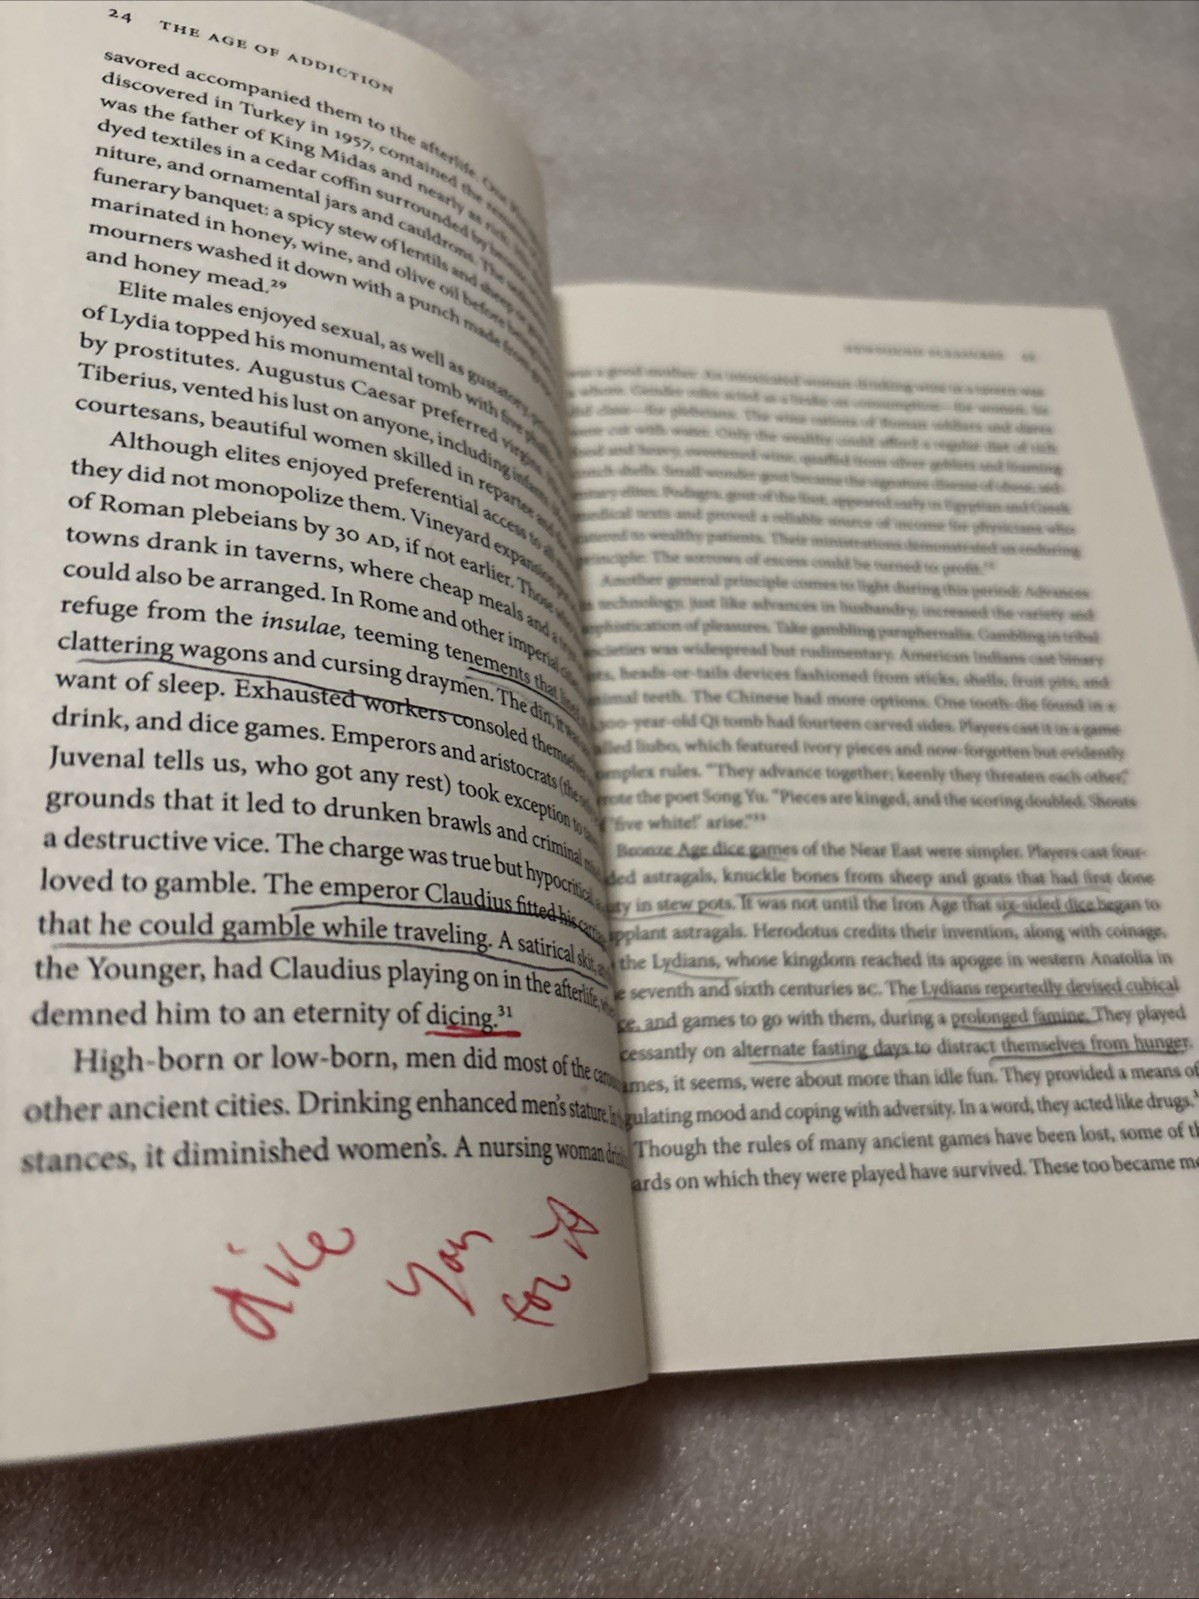 24 THE AGE OF ADDICTION
savored accompanied them to the afterlife. One
discovered in Turkey in 1957, contained the
was the father of King Midas and nearly as rich,
dyed textiles in a cedar coffin surrounded by
niture, and ornamental jars and cauldrons. The
funerary banquet: a spicy stew of lentils and sheep or
marinated in honey, wine, and olive oil before
mourners washed it down with a punch made from
and honey mead.²⁹
Elite males enjoyed sexual, as well as gustatory,
of Lydia topped his monumental tomb with five
by prostitutes. Augustus Caesar preferred virgins.
Tiberius, vented his lust on anyone, including infants.
courtesans, beautiful women skilled in repartee and
Although elites enjoyed preferential access to
they did not monopolize them. Vineyard expansion
of Roman plebeians by 30 AD, if not earlier. Those
towns drank in taverns, where cheap meals and a
could also be arranged. In Rome and other imperial
refuge from the insulae, teeming tenements that
clattering wagons and cursing draymen. The din, it was
want of sleep. Exhausted workers consoled themselves
drink, and dice games. Emperors and aristocrats (the
Juvenal tells us, who got any rest) took exception to
grounds that it led to drunken brawls and criminal
a destructive vice. The charge was true but hypocritical,
loved to gamble. The emperor Claudius fitted his
that he could gamble while traveling. A satirical skit,
the Younger, had Claudius playing on in the afterlife,
demned him to an eternity of dicing.³¹
High-born or low-born, men did most of the
other ancient cities. Drinking enhanced men's stature.
stances, it diminished women's. A nursing woman
dice
you
for it
NEWFOUND PLEASURES
was a good mother. An intoxicated woman drinking wine in a tavern was
a whore. Gender roles acted as a brake on consumption—for women. So
did class—for plebeians. The wine rations of Roman soldiers and slaves
were cut with water. Only the wealthy could afford a regular diet of rich
food and heavy, sweetened wine, quaffed from silver goblets and foaming
conch shells. Small wonder gout became the signature disease of obese,
elites. Podagra, gout of the foot, appeared early in Egyptian and Greek
medical texts and proved a reliable source of income for physicians who
catered to wealthy patients. Their ministrations demonstrated an enduring
principle: The sorrows of excess could be turned to profit.
Another general principle comes to light during this period: Advances
in technology, just like advances in husbandry, increased the variety and
sophistication of pleasures. Take gambling paraphernalia. Gambling in tribal
societies was widespread but rudimentary. American Indians cast binary
heads-or-tails devices fashioned from sticks, shells, fruit pits, and
animal teeth. The Chinese had more options. One tooth-die found in a
300-year-old Qi tomb had fourteen carved sides. Players cast it in a game
called liubo, which featured ivory pieces and now-forgotten but evidently
complex rules. "They advance together; keenly they threaten each other,"
wrote the poet Song Yu. "Pieces are kinged, and the scoring doubled. Shouts
'five white!' arise."³³
Bronze Age dice games of the Near East were simpler. Players cast four-
ded astragals, knuckle bones from sheep and goats that had first done
ty in stew pots. It was not until the Iron Age that six-sided dice began to
pplant astragals. Herodotus credits their invention, along with coinage,
the Lydians, whose kingdom reached its apogee in western Anatolia in
e seventh and sixth centuries BC. The Lydians reportedly devised cubical
ce, and games to go with them, during a prolonged famine. They played
cessantly on alternate fasting days to distract themselves from hunger.
ames, it seems, were about more than idle fun. They provided a means of
gulating mood and coping with adversity. In a word, they acted like drugs.
Though the rules of many ancient games have been lost, some of th
ards on which they were played have survived. These too became m